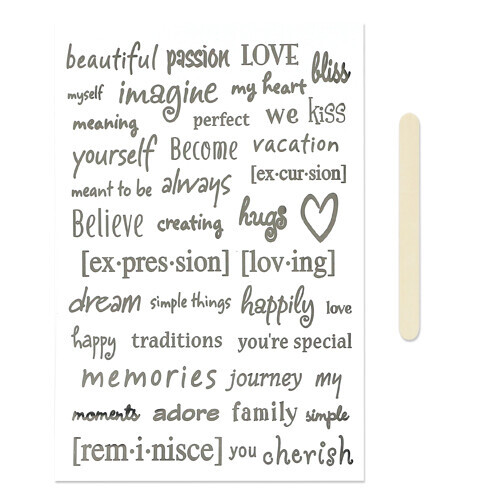 beautiful passion LOVE bliss
myself imagine my heart
meaning perfect we kiss
yourself Become vacation
meant to be always [ex·cur·sion]
Believe creating hugs
[ex·pres·sion] [lov·ing]
dream simple things happily love
happy traditions you're special
memories journey my
moments adore family simple
[rem·i·nisce] you cherish